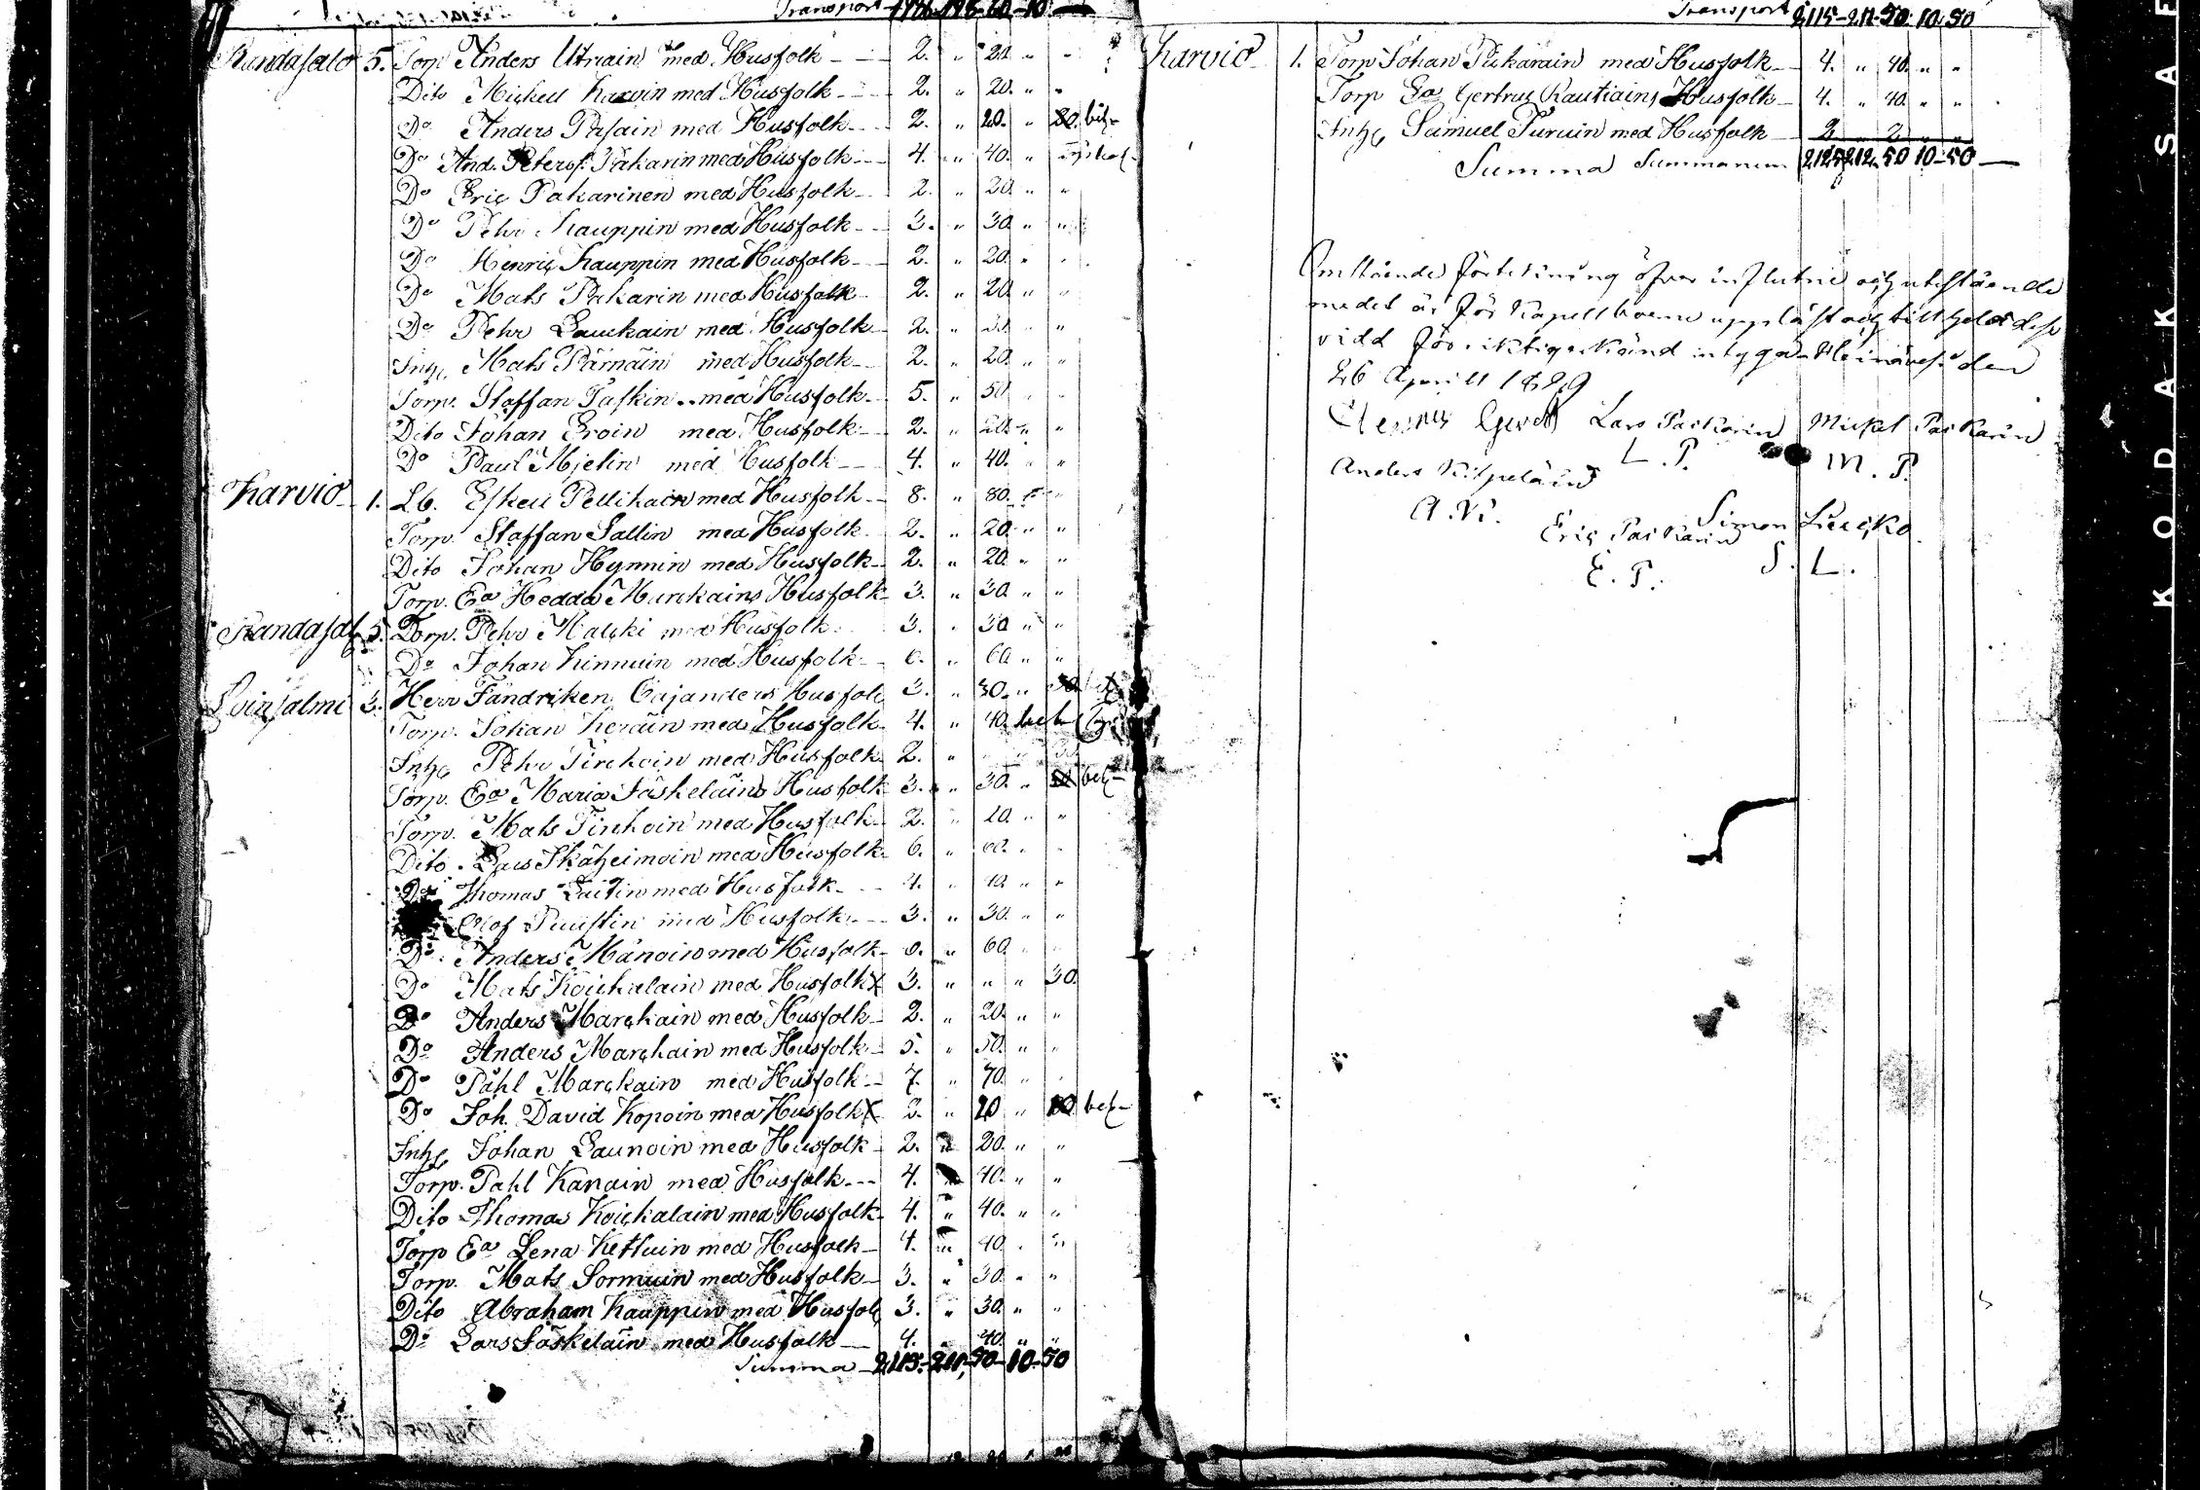 Transport 1986-198-60-10-
Randasalo 5. Torp Anders Utriain med Husfolk 2. " 20. " "
Dito Mickell Karvin med Husfolk 2. " 20. " "
Do Anders Pasain med Husfolk 2. " 20. " 20. bet
Do And. Peters. Pakarin med Husfolk 4. " 40. "
Do Eric Pakarinen med Husfolk 2. " 20. " "
Do Pehr Kauppin med Husfolk 3. " 30. " "
Do Henric Kauppin med Husfolk 2. " 20. " "
Do Mats Pakarin med Husfolk 2. " 20. " "
Do Pehr Lauckain med Husfolk 2. " " "
Inhs Mats Pärnäin med Husfolk 2. " 20. " "
Torp. Staffan Paskin med Husfolk 5. " 50 " "
Dito Johan Eroin med Husfolk 2. " 20. " "
Do Paul Mjelin med Husfolk 4. " 40. " "
Karvio 1. Lb. Eskell Pellikain med Husfolk 8. " 80. " "
Torp. Staffan Sallin med Husfolk 2. " 20. " "
Dito Johan Hynnin med Husfolk 2. " 20. " "
Torp. Ea Hedda Marckains Husfolk 3. " 30. " "
Randasal 5. Torp. Pehr Malski med Husfolk 3. " 30 " "
Do Johan Kinnuin med Husfolk 6. " 60 " "
3. Herr Fändriken Cajanders Husfolk 3. " 30. "
Torp. Johan Keräin med Husfolk 4. " 40.
Inhs Pehr Tirckoin med Husfolk 2. "
Torp. Ea Maria Jäskeläins Husfolk 3. " 30. " bet
Torp. Mats Tirckoin med Husfolk 2. " 20. " "
Dito Lars med Husfolk 6. " 60. " "
Do Thomas Laitin med Husfolk 4. " 40. " "
Olof Puustin med Husfolk 3. " 30. " "
Do Anders Mänoin med Husfolk 6. " 60.
Do Mats Koickalain med Husfolk X 3. " " " 30.
Do Anders Marckain med Husfolk 2. " 20. " "
Do Anders Marckain med Husfolk 5. " 50. " "
Do Påhl Marckain med Husfolk 7. " 70. " "
Do Joh. David Kopoin med Husfolk X 2. " 20 " 20 bet
Inhs Johan Launoin med Husfolk 2. " 20. " "
Torp. Påhl Kanain med Husfolk 4. " 40. " "
Dito Thomas Koickalain med Husfolk 4. " 40. " "
Torp Ea Lena Kettuin med Husfolk 4. " 40. " "
Torp. Mats Sormuin med Husfolk 3. " 30. " "
Dito Abraham Kauppin med Husfolk 3. " 30. " "
Do Lars Jäskeläin med Husfolk 4. " 40. " "
Summa 2,115-211,50-10-50
Transport 2,115-211-50 10 50
Karvio 1. Torp Johan Pakarain med Husfolk 4. " 40. " "
Torp Ea Gertrud Rautiains Husfolk 4. " 40. " "
Inhs Samuel Turuin med Husfolk 2 2
Summa Summarum 2,125 212. 50 10-50
Omstående förtekning öfver influtne och utestående
medel är för Kapellboerne uppläst och
vidd för riktig erkänd intygar Heinäves. den
26 Aprill 1829
Lars Paskarin Mickel Paskarin
L. P. M. P.
Anders Kilpeläin
A. K. Simon
Eric Paskarin S. L.
E. P.
KODAK SAFE